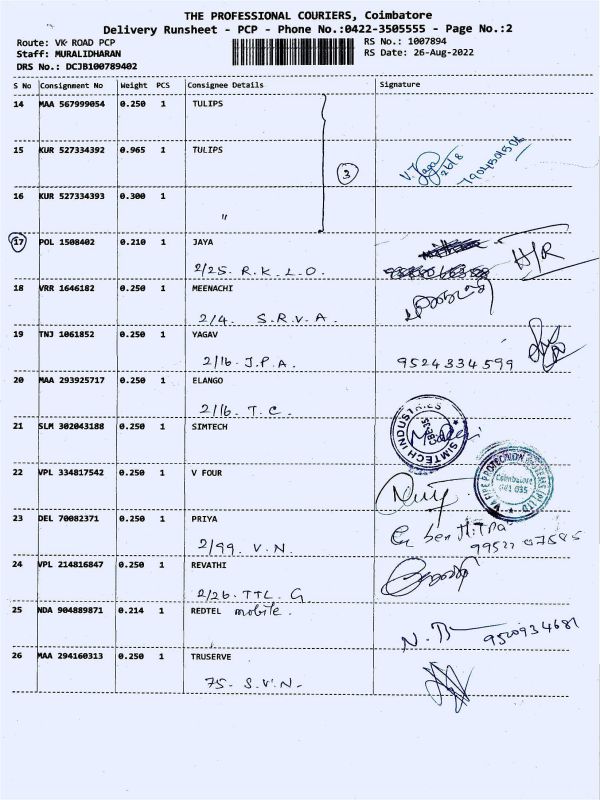 THE PROFESSIONAL COURIERS, Coimbatore
Delivery Runsheet - PCP - Phone No.:0422-3505555 - Page No.:2
Route: VK ROAD PCP
RS No.: 1007894
Staff: MURALIDHARAN
RS Date: 26-Aug-2022
DRS No.: DCJB100789402
S No Consignment No Weight PCS Consignee Details Signature
14 MAA 567999054 0.250 1 TULIPS
15 KUR 527334392 0.965 1 TULIPS
26/8
7904501506
3
16 KUR 527334393 0.300 1
"
17 POL 1508402 0.210 1 JAYA
H/R
2/25. R.K.L.O.
18 VRR 1646182 0.250 1 MEENACHI
2/4. S.R.V.A.
19 TNJ 1061852 0.250 1 YAGAV
2/16. J.P.A. 9524334599
20 MAA 293925717 0.250 1 ELANGO
2/16. T.C.
21 SLM 302043188 0.250 1 SIMTECH
SIMTECH INDUSTRIES
22 VPL 334817542 0.250 1 V FOUR
Coimbatore
641 035
23 DEL 70082371 0.250 1 PRIYA
2/99. V.N. 99522 07585
24 VPL 214816847 0.250 1 REVATHI
2/26. TTL. G
25 NDA 904889871 0.214 1 REDTEL mobile.
9500934681
26 MAA 294160313 0.250 1 TRUSERVE
75. S.V.N.